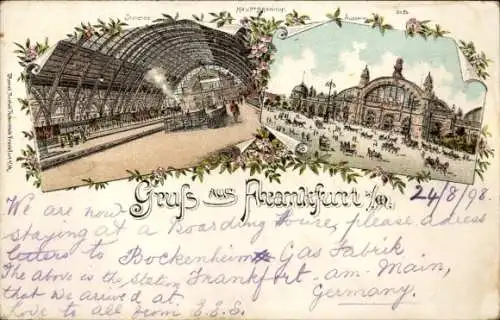 Hauptbahnhof.
Gruß aus Frankfurt a/M.
24/8/98.
We are now
staying at a boarding house, please adress
letters to Bockenheim Gas Fabrik
The above is the Station Frankfort-am-Main,
that we arrived at. Germany.
Love to all from E.E.S.